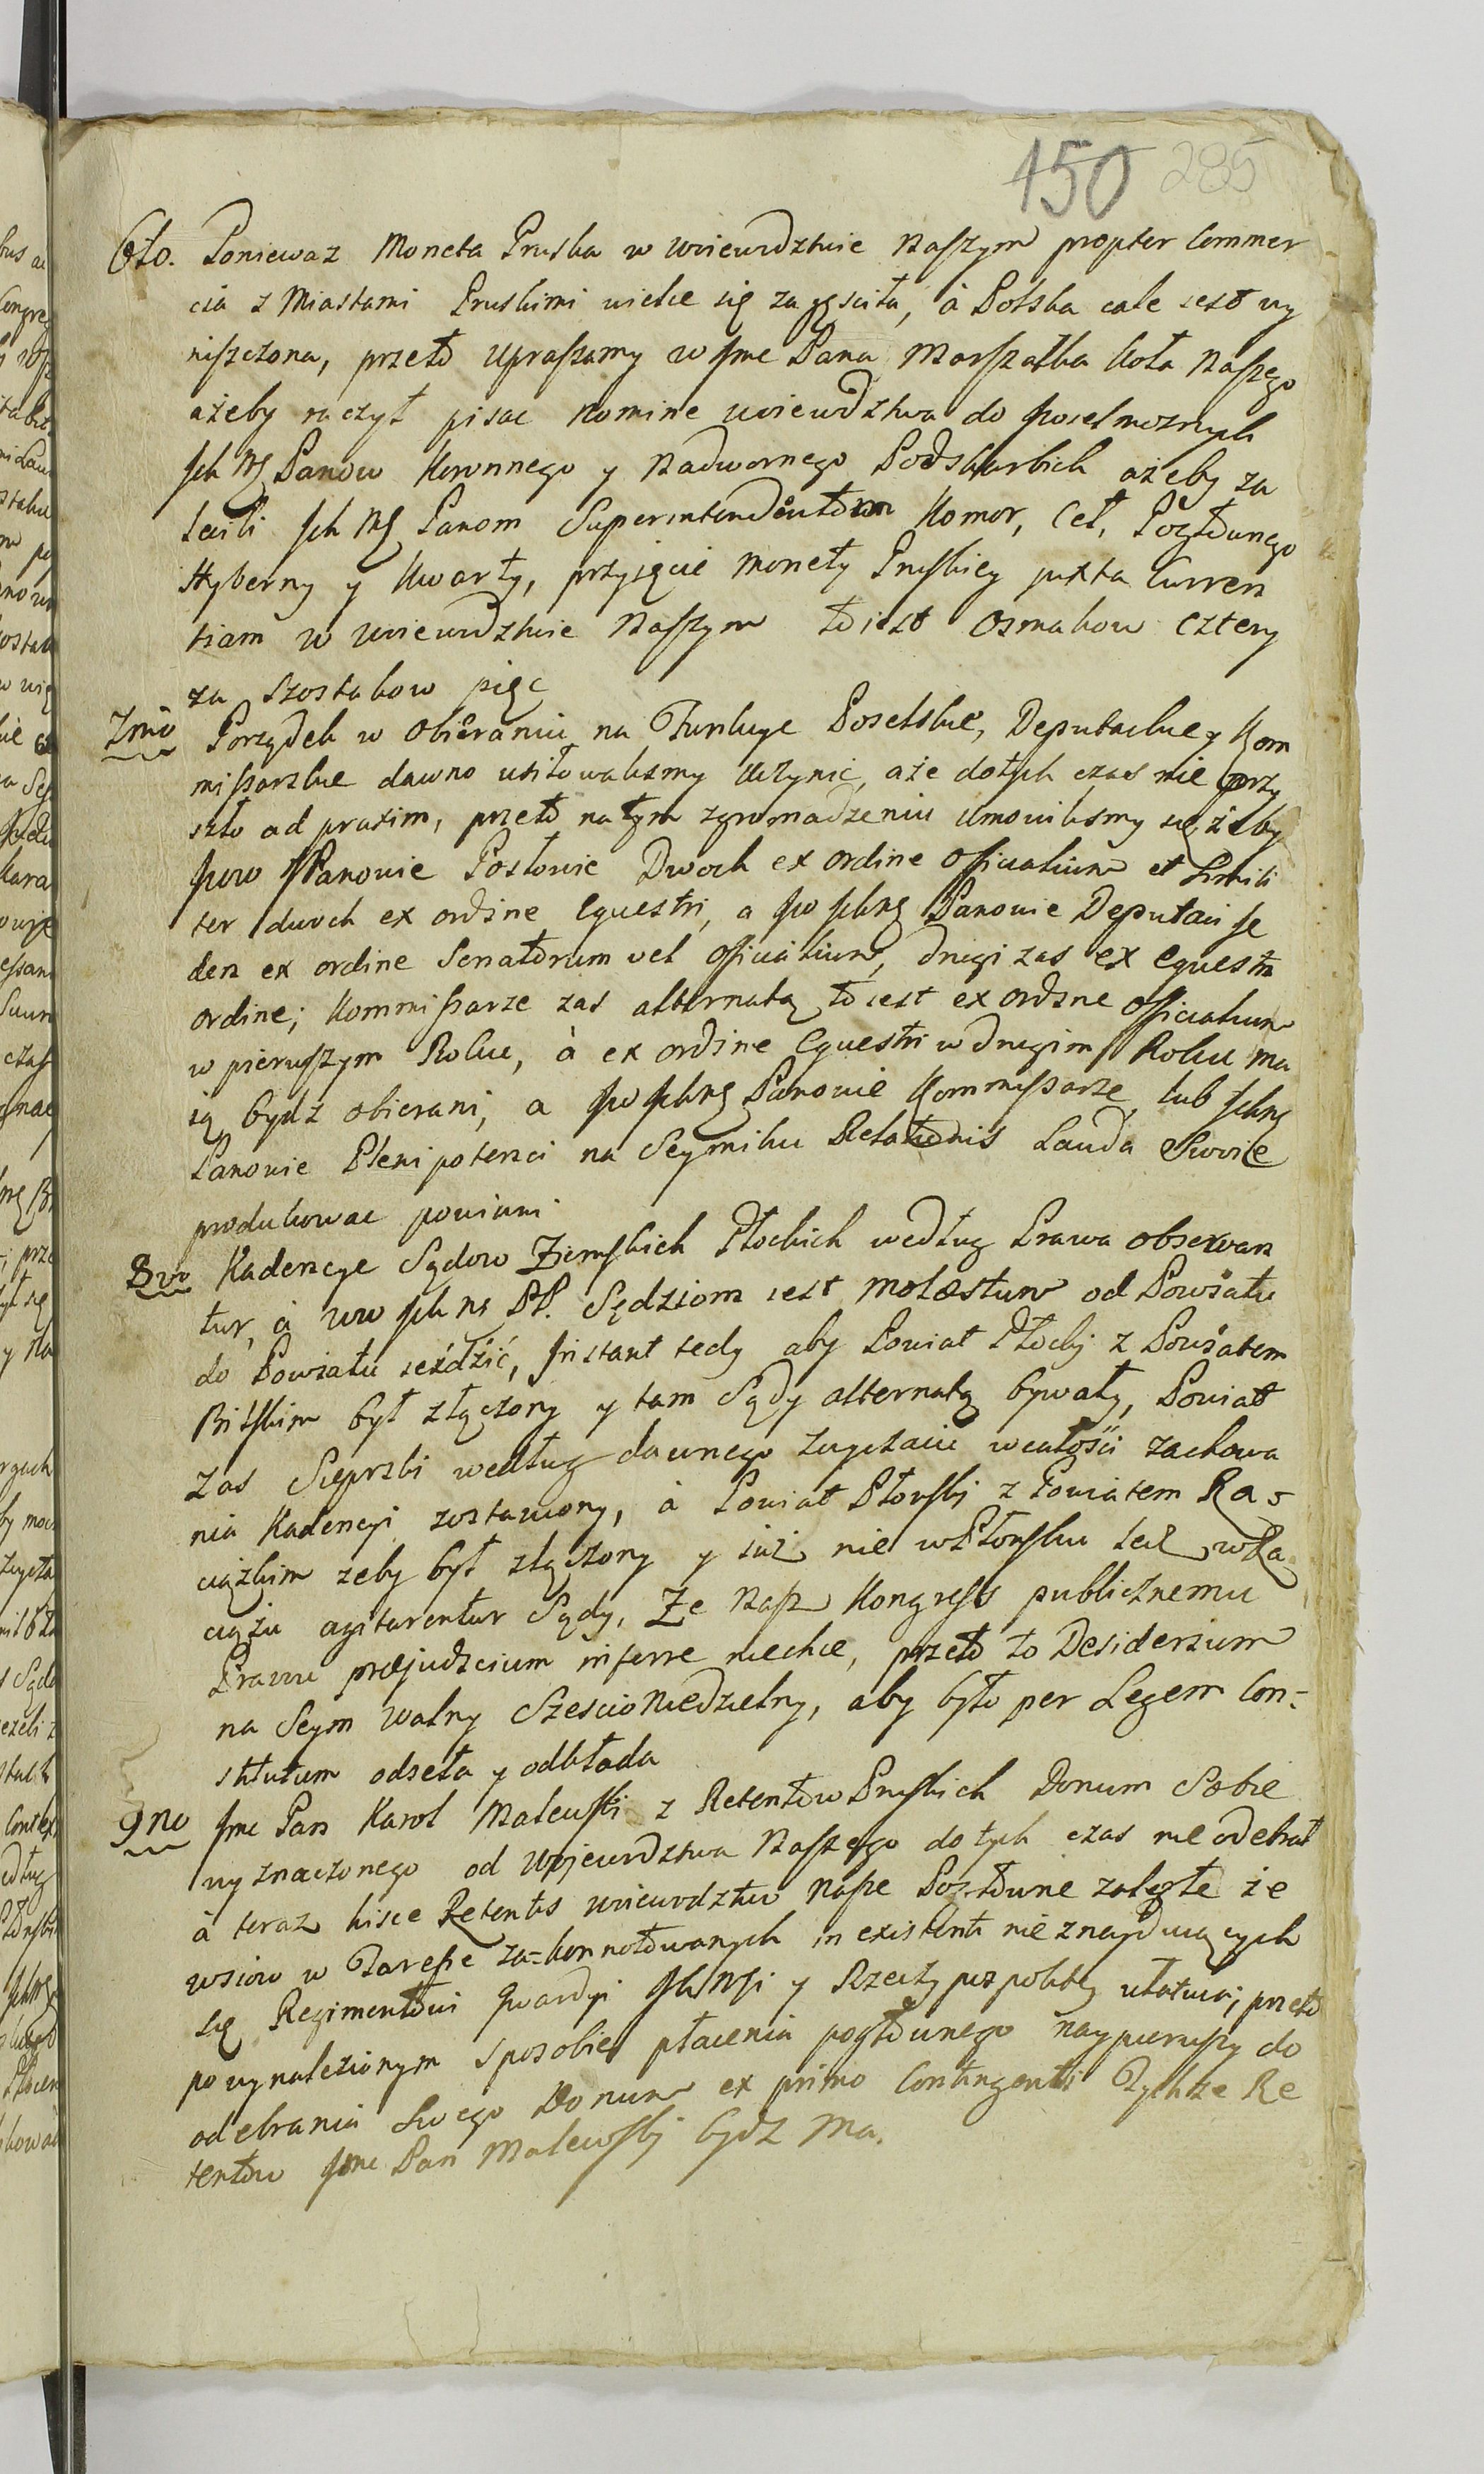 150 285
6to. Poniewaz Moneta Pruska w wojewdztwie Naszym propter Commer
cia z Miastami Pruskimi wielce się zagęsciła, à Polska cale iest wy
niszczona, przeto upraszamy w Jme Pana Marszałka koła Naszego
ażeby raczył pisac Nomine wojewdztwa do Jwielmoznych
Jch Mę Panow Koronnego y Nadwornego Podskarbich ażeby za
lecili Jch Mę Panom Superintendentom Komor, Ceł, Pogłownego
Hyberny y Kwarty, przyięcie monety Pruskiey juxta Curren
tiam w wojewdztwie Naszym to iest Osmakow cztery
za szostakow pięc
7mo Porządek w obieraniu na Funkcye Poselskie, Deputackie y Kom
missarskie dawno usiłowalismy uczynic, aże dotych czas nie przy
szło ad praxim, przeto na tym zgromadzeniu umowilismy się żeby
Jww JPanowie Posłowie Dwoch ex ordine officialium et simili
ter dwoch ex ordine Equestri, a Jw Jchmę Panowie Deputaci Je
den ex ordine Senatorum vel officialium, drugi zas ex equestri
ordine; Kommissarze zas alternatą to iest ex ordine officialium
w pierwszym Roku, à ex ordine Equestri w drugim Roku ma
ią bydz obierani, a Jw Jchmę Panowie Kommissarze lub Jchmę
Panowie Plenipotenci na Seymiku Relationis Lauda Swoie
produkowac powinni
8vo Kadencye Sądow Ziemskich Płockich według Prawa observan
tur, à ww Jch ms PP. Sędziom iest molestum od Powiatu
do Powiatu ieździć, Jnstant tedy aby Powiat Płocki z Powiatem
Bilskim był złączony y tam Sądy alternatą bywały, Powiat
zas Sieprski według dawnego zwyczaiu wcałości zachowa
nia Kadencyi zostawiony, à Powiat Płonski z Powiatem Ra-
ciązkim zeby był złączony y iuż nie w Płonsku lecz w Ra
ciążu agitarentur Sądy, Ze Nasz Kongress publicznemu
Prawu præjudicium inferre niechce, przeto to Desiderium
na Seym walny Szescio Niedzielny, aby było per Legem Con-
stitutum odseła y odkłada
9no Jmc Pan Karol Malewski z Retentow Pruskich Donum Sobie
wyznaczonego od Wojewdztwa Naszego do tych czas nie odebrał
à teraz hisce Retentis wojewodztw nasze Pogłowne zaległe że
wsiow w Taryfie za-konnotowanych in existenti nie znayduiących
się Regimentowi Gwardyi JKMsi y Rzeczypospolitey ułatwia, przeto
po wynalezionym sposobie płacenia pogłownego naypierwszy do
odebrania Swego Donum ex primo Contingenti Tychże Re
tentow Jmc Pan Malewski bydz Ma.